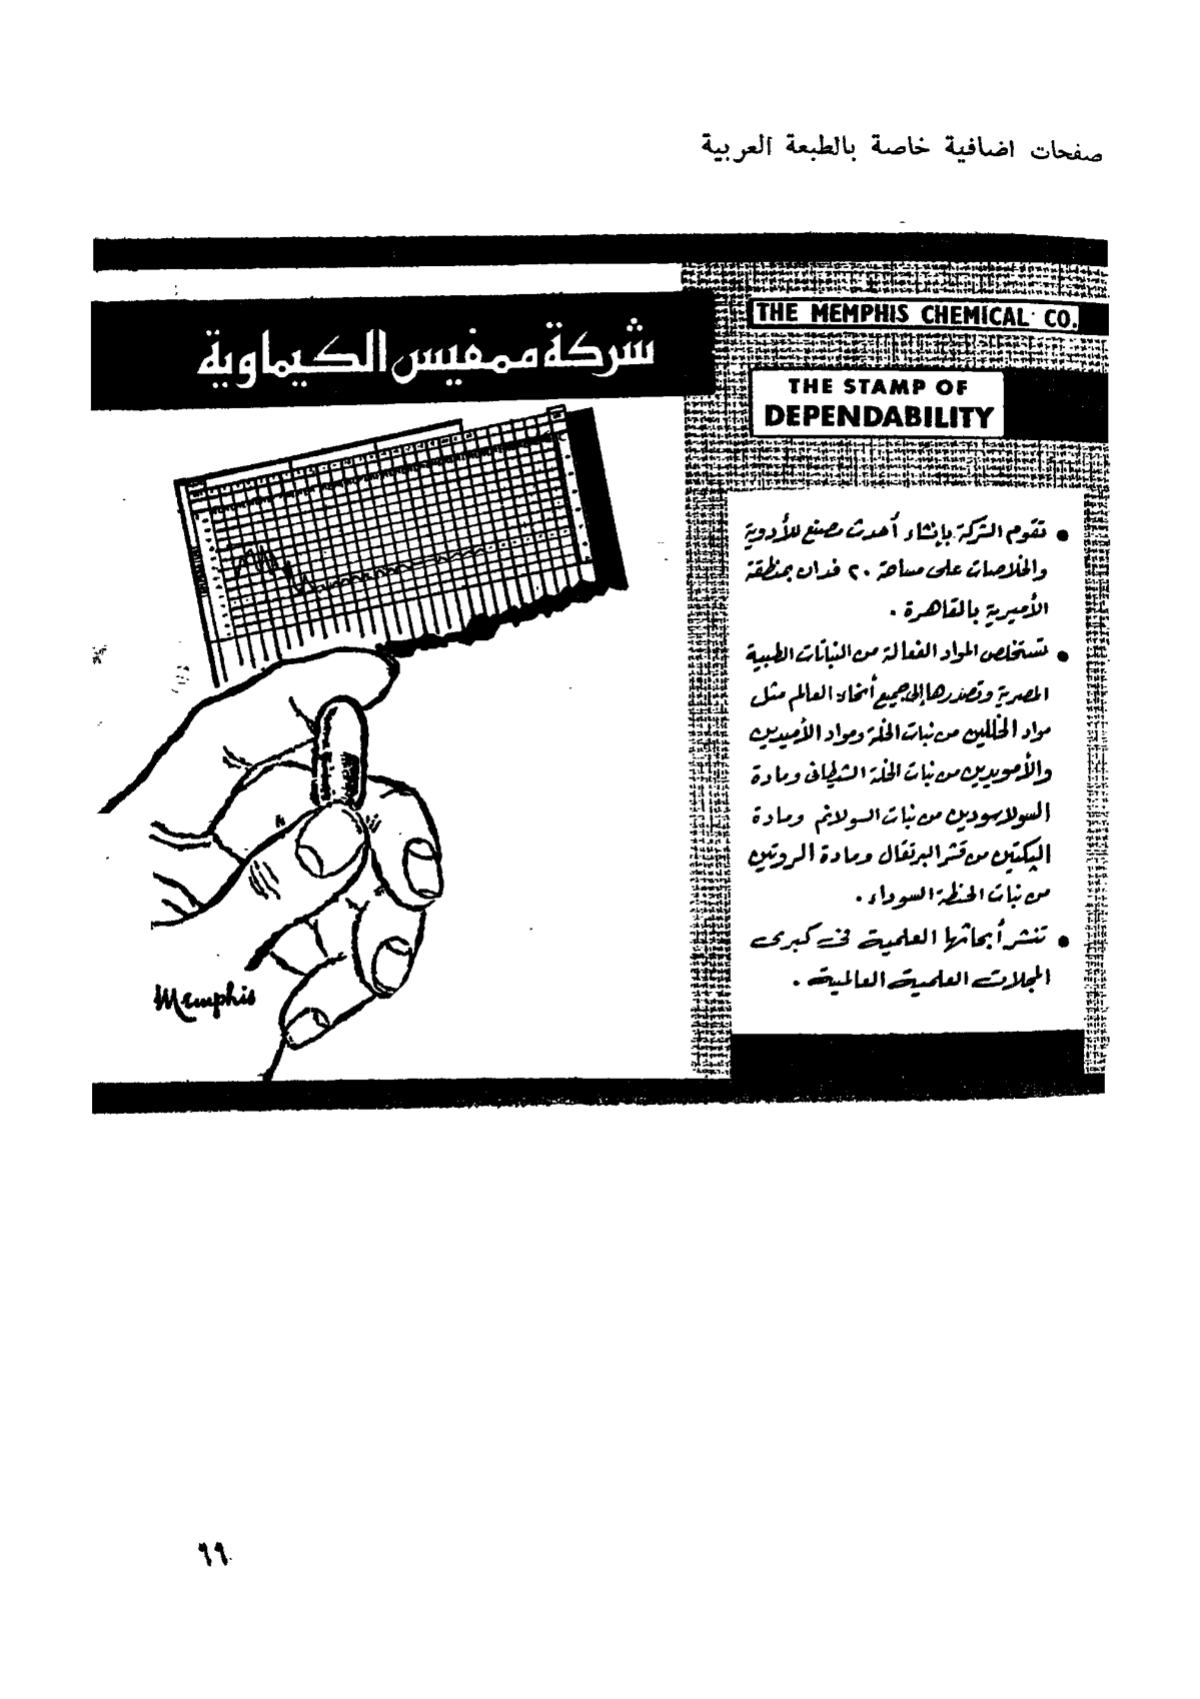 صفحات اضافية خاصة بالطبعة العربية
شركة ممفيس الكيماوية
THE MEMPHIS CHEMICAL CO.
THE STAMP OF
DEPENDABILITY
• تقوم الشركة بإنشاء أحدث مصنع للأدوية
والخلاصات على مساحة ٢٠ فدان بمنطقة
الأميرية بالقاهرة .
• تستخلص المواد الفعالة من النباتات الطبية
المصرية وتصدرها إلى جميع أنحاء العالم مثل
مواد الخللين من نبات الخلة ومواد الأميدين
والأمويدين من نبات الخلة الشيطانى ومادة
السولاسودين من نبات السولانم ومادة
البكتين من قشر البرتقال ومادة الروتين
من نبات الحنطة السوداء .
• تنشر أبحاثها العلمية فى كبرى
المجلات العلمية العالمية .
Memphis
٦٦